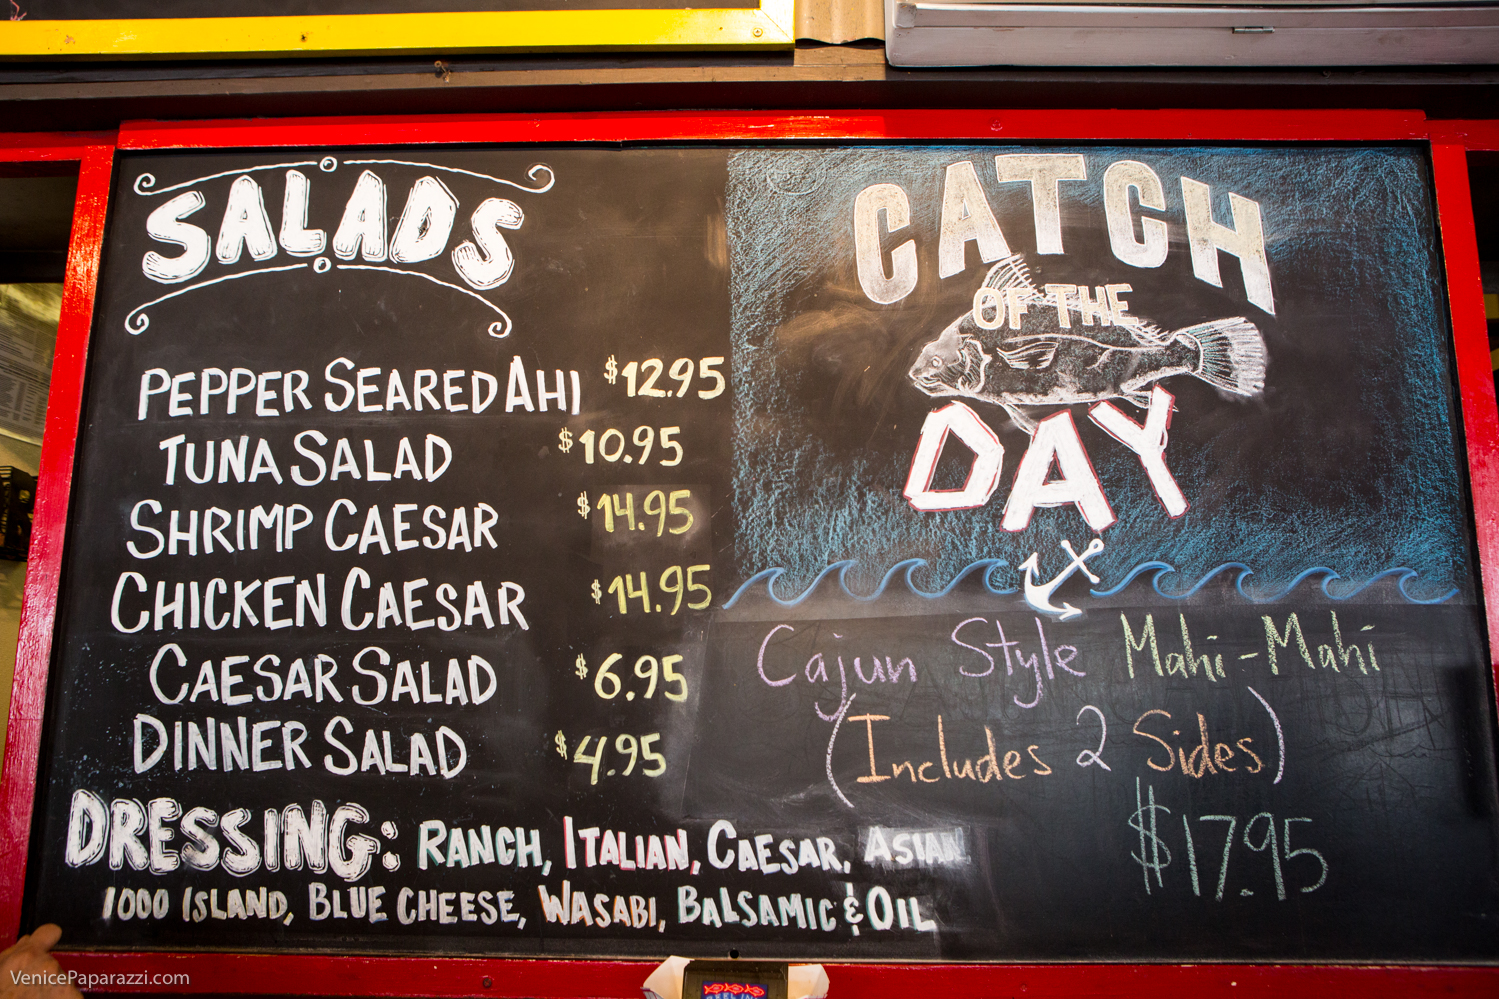 SALADS
PEPPER SEARED AHI $12.95
TUNA SALAD $10.95
SHRIMP CAESAR $14.95
CHICKEN CAESAR $14.95
CAESAR SALAD $6.95
DINNER SALAD $4.95
DRESSING: RANCH, ITALIAN, CAESAR, ASIAN
1000 ISLAND, BLUE CHEESE, WASABI, BALSAMIC & OIL
CATCH
OF THE
DAY
Cajun Style Mahi-Mahi
(Includes 2 Sides)
$17.95
VenicePaparazzi.com